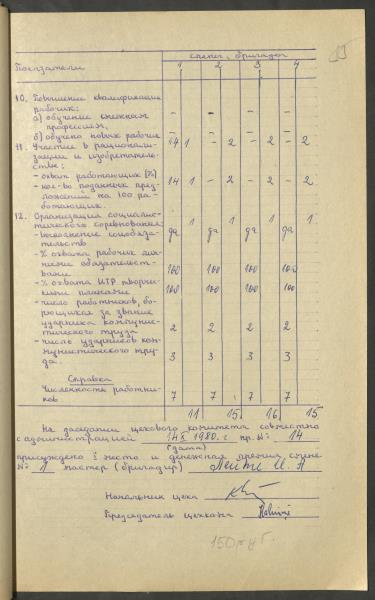 Показатели
смены, бригады
1 2 3 4
10. Повышение квалификации
рабочих:
а) обучение смежным - - - -
профессиям,
б) обучено новых рабочих - - - -
11. Участие в рационали- 14 1 - 2 - 2 - 2
зации и изобретатель-
стве:
- охват работающих (%) 14 1 - 2 - 2 - 2
- кол-во поданных пред-
ложений на 100 ра-
ботающих.
12. Организация социалис-
тического соревнования: 1 1 1 1
- выполнение соцобяза- да да да да
тельств
- % охвата рабочих лич-
ными обязательст-
вами 100 100 100 100
- % охвата ИТР творчес-
кими планами 100 100 100 100
- число работников, бо-
рющихся за звание
ударника коммунис-
тического труда 2 2 2 2
- число ударников ком-
мунистического тру-
да. 3 3 3 3
Справка
Численность работни-
ков 7 7 7 7
11 15 16 15
На заседании цехового комитета совместно
с администрацией 14 X 1980 г. пр. № 14
(дата)
присуждено I место и денежная премия смене
№ 1 мастер (бригадир)
Начальник цеха
Председатель цехкома